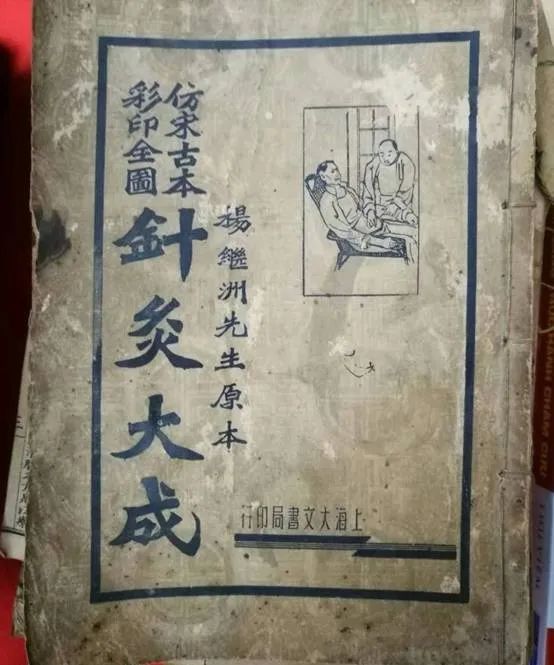 仿宋古本
彩印全圖
楊繼洲先生原本
針灸大成
上海大文書局印行